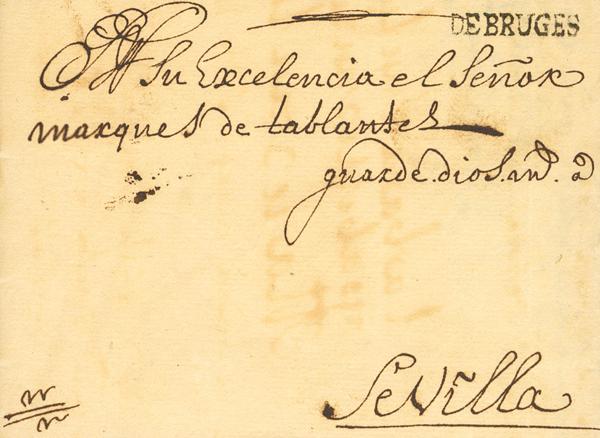 DE BRUGES
A Su Excelencia el Señor
marques de tablantes
guarde.dios.m.ˢ a.
Sevilla